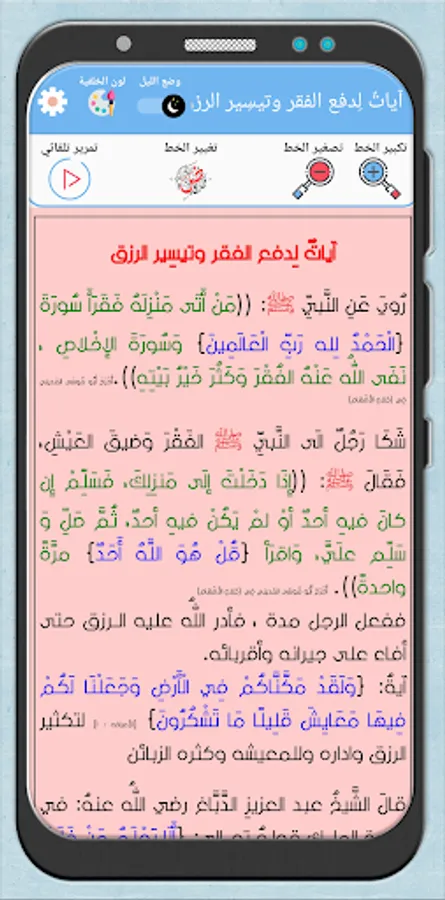 وضع الليل
لون الخلفية
آياتٌ لِدفع الفقر وتيسِير الرز
تكبير الخط
تصغير الخط
تغيير الخط
تمرير تلقائي
آياتٌ لِدفع الفقر وتيسِير الرزق
رُوِيَ عَنِ النَّبيِّ ﷺ: ((مَنْ أَتَى مَنْزِلَهُ فَقَرَأَ سُورَةَ
{الْحَمْدُ لِله رَبِّ الْعَالَمِينَ} وَسُورَةَ الإِخْلاصِ ،
نَفَى اللهُ عَنْهُ الفُقْرَ وَكَثُرَ خَيْرُ بَيْتِهِ)).
شَكَا رَجُلٌ الى النَّبيِّ ﷺ الفَقْرَ وَضيقَ العَيْشِ،
فَقَالَ ﷺ: ((إِذَا دَخَلْتَ إِلَى مَنزِلِكَ، فَسَلِّمْ إِن
كانَ فيهِ أحدٌ أوْ لمْ يَكُنْ فيهِ أحدٌ، ثُمَّ صَلِّ وَ
سَلِّم علَيَّ، وَاقرَأ {قُلْ هُوَ اللَّهُ أَحَدٌ} مرَّةً
واحدةً)).
ففعل الرجل مدة ، فأدر الله عليه الـرزق حتى
أفاء على جيرانه وأقربائه.
آيةُ: {وَلَقَدْ مَكَّنَّاكُمْ فِي الْأَرْضِ وَجَعَلْنَا لَكُمْ
فِيهَا مَعَايِشَ قَلِيلًا مَا تَشْكُرُونَ} لتكثير
الرزق واداره وللمعيشه وكثره الزبائن
قالَ الشَّيخُ عبد العزيزِ الدَّبَّاغ رضي اللّه عنهُ: في